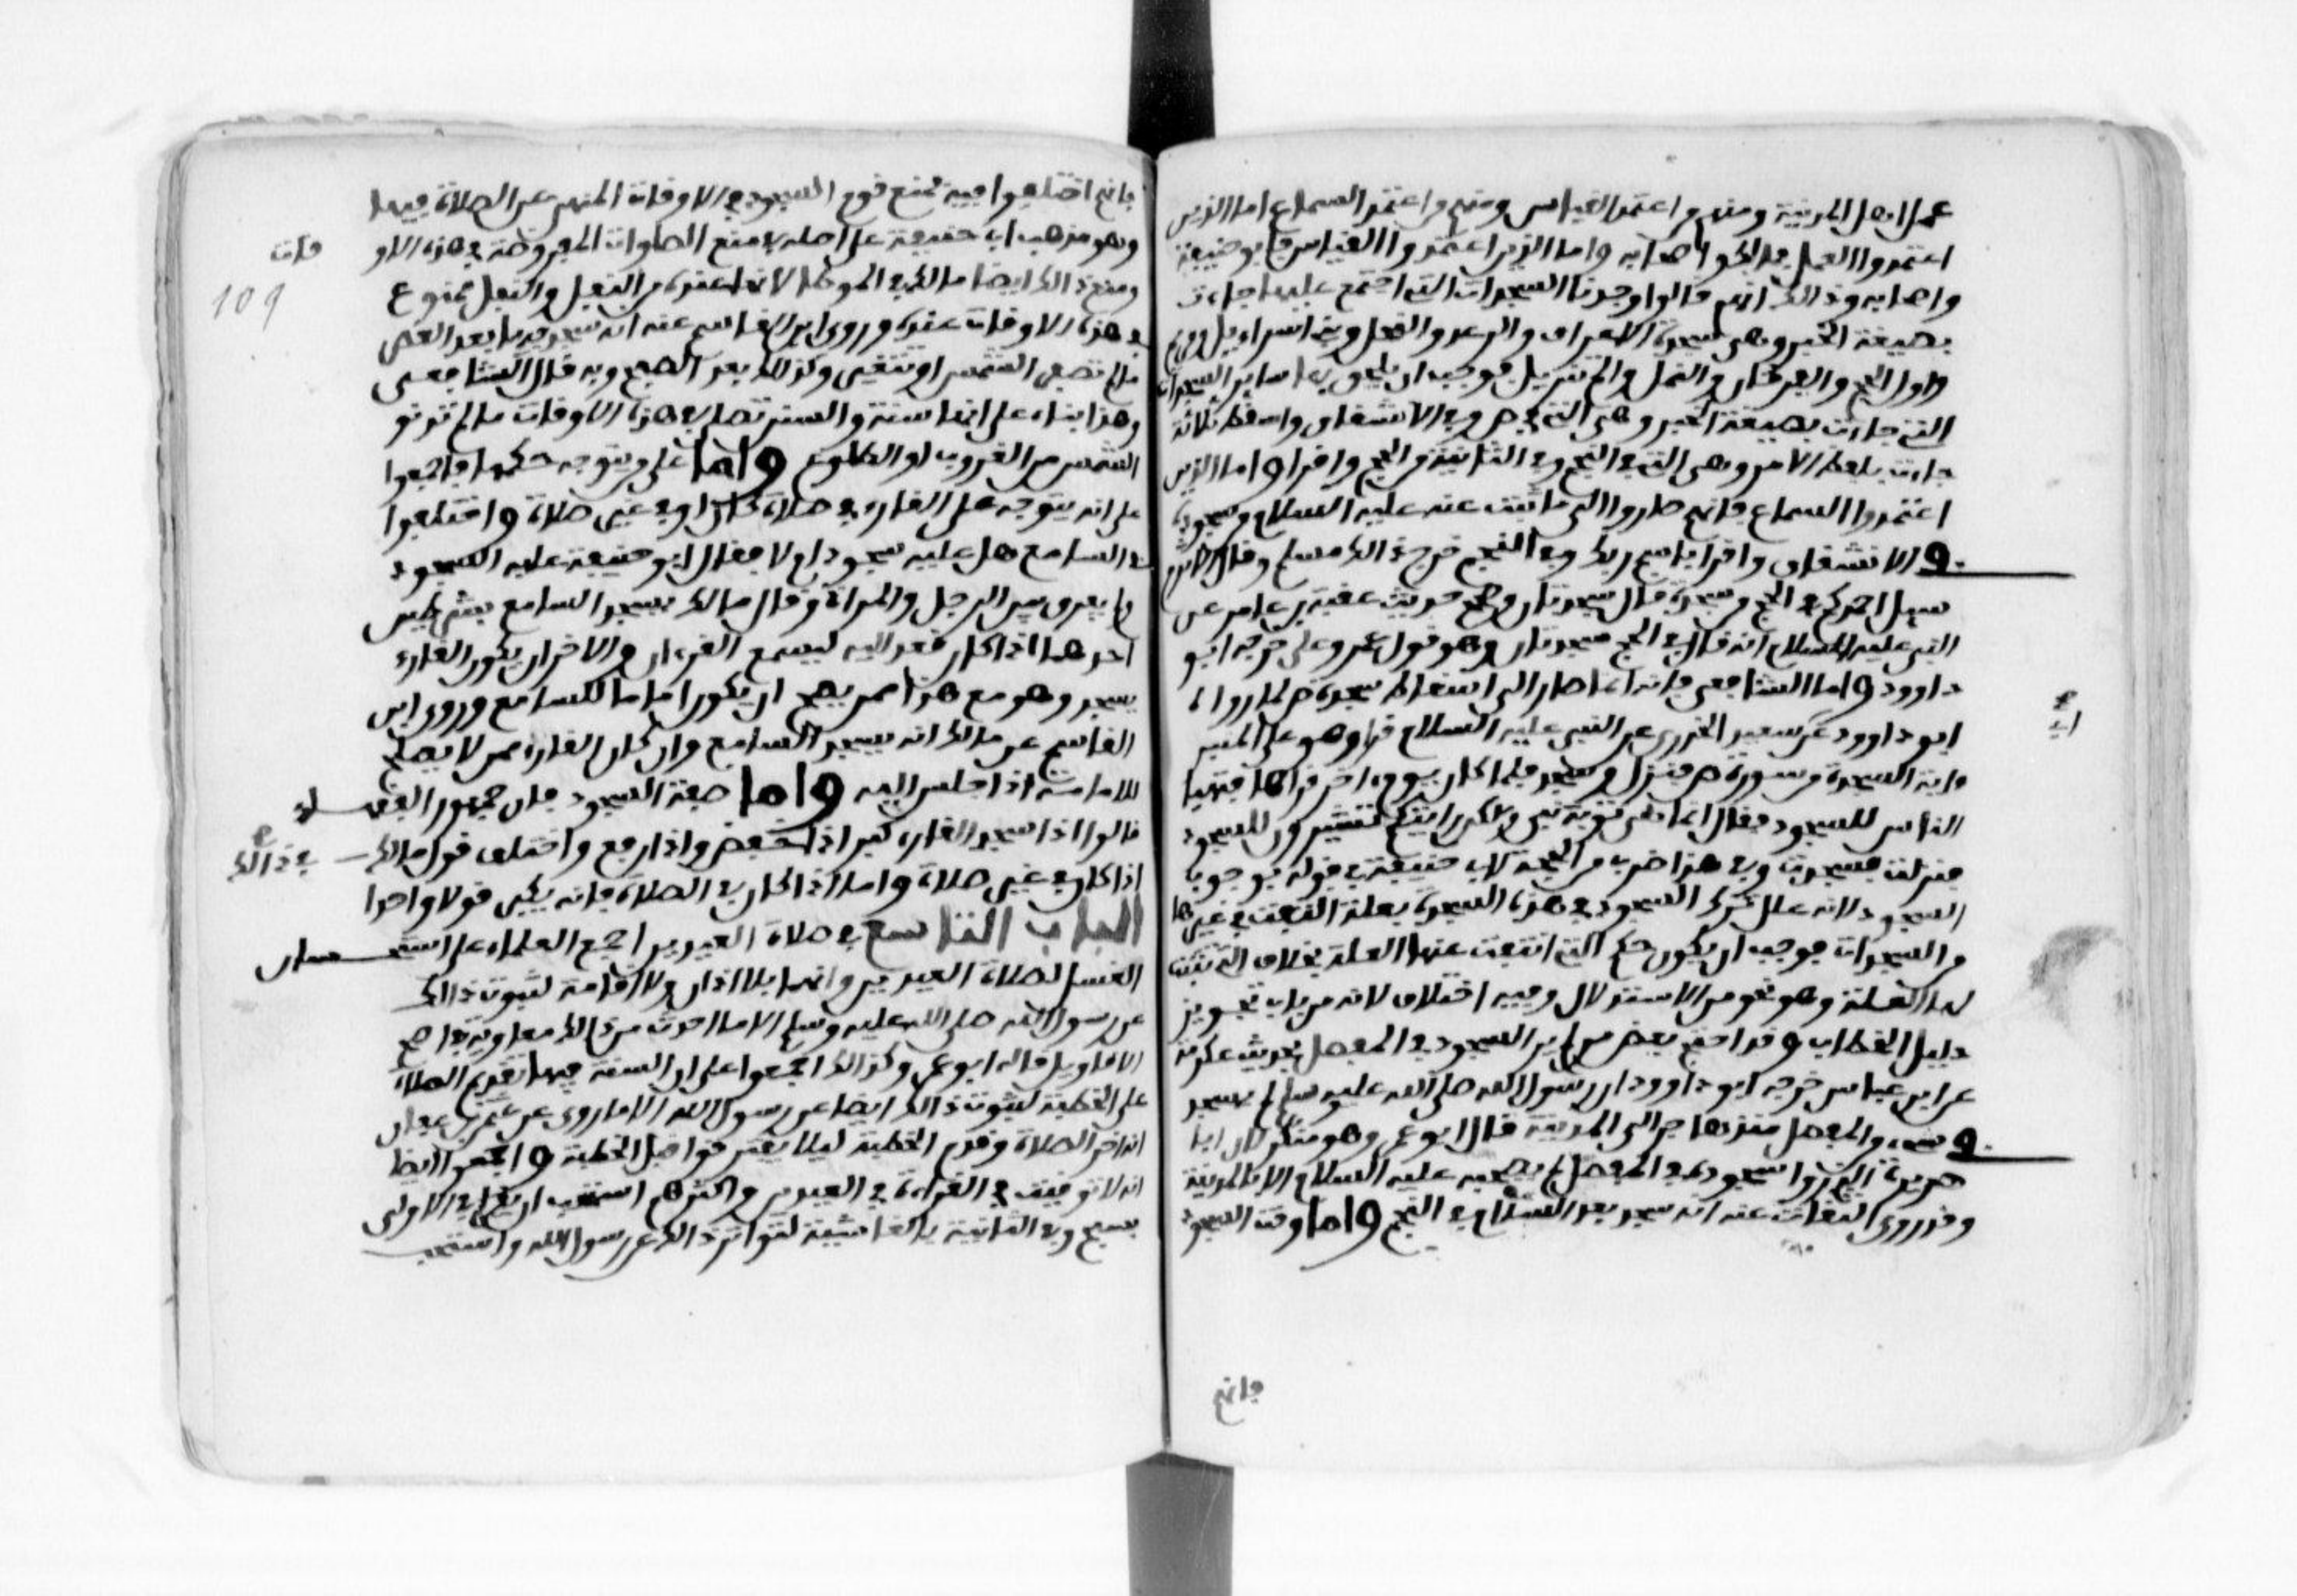 عمل اهل المدينة ومنهم من اعتمد القياس ومنهم من اعتمد السماع اما الذين
اعتمدوا العمل فمالك واصحابه واما الذين اعتمدوا القياس فابو حنيفة
واصحابه وذالك انهم قالوا وجدنا السجدات التي اجتمع عليها جاءت
بصيغة الخبر وهي سجدة الاعراف والرعد والنحل وبني اسراءيل ومريم
واول الحج والفرقان والنمل والم تنزيل فوجب ان يلحق بها ساير السجدات
التي جاءت بصيغة الخبر وهي التي في ص وفي الانشقاق واسقط ثلاثة
جاءت بلفظ الامر وهي التي في النجم وفي الثانية من الحج واقرا واما الذين
اعتمدوا السماع فانهم صاروا الى ما ثبت عنه عليه السلام من سجوده
في الانشقاق واقرا باسم ربك وفي النجم خرج ذالك مسلم وقال الاثرم
سيل احمد كم في الحج من سجدة قال سجدتان وصحح حديث عقبة بن عامر عن
النبي عليه السلام انه قال في الحج سجدتان وهو قول عمر وعلي خرجه ابو
داوود واما الشافعي فانه انما صار الى اسقاط سجدة ص لما رواه
ابو داوود عن سعيد الخدري عن النبي عليه السلام قرا وهو على المنبر
ابي
ءاية السجدة من سورة ص فنزل وسجد فلما كان يوم ءاخر قراها فتهيا
الناس للسجود فقال انما هي توبة نبي ولاكن رايتكم تتشيرون للسجود
فنزلت فسجدت وفي هذا ضرب من الحجة لابي حنيفة في قوله بوجوب
السجود لانه علل ترك السجود في هذه السجدة بعلة انتفت في غيرها
من السجدات فوجب ان يكون حكم التي انتفت عنها العلة بخلاف التي ثبتت
لها العلة وهو نحو من الاستدلال وفيه اختلاف لانه من باب تجويز
دليل الخطاب وقد احتج بعض من لم ير السجود في المفصل بحديث عكرمة
عن ابن عباس خرجه ابو داوود ان رسول الله صلى الله عليه وسلم لم يسجد
في شيء من المفصل منذ هاجر الى المدينة قال ابو عمر وهو منكر لان ابا
هريرة الذي روا سجوده في المفصل لم يصحبه عليه السلام الا بالمدينة
وقد روى الثقات عنه انه سجد بعد السلام في النجم واما وقت السجود
فانهم
فانهم اختلفوا فيه فمنع قوم السجود في الاوقات المنهي عن الصلاة فيها
وهو مذهب ابي حنيفة على اصله في منع الصلوات المفروضة في هذه الاو قات
ومنع ذالك ايضا مالك في الموطا لانها عنده من النفل والنفل ممنوع
109
في هذه الاوقات عنده وروى ابن القاسم عنه انه يسجد فيها بعد العصر
ما لم تصفر الشمس او تتغير وكذلك بعد الصبح وبه قال الشافعي
وهذا بناء على انها سنة والسنن تصلى في هذه الاوقات ما لم تدنو
الشمس من الغروب او الطلوع واما على من يتوجه حكمها فاجمعوا
على انه يتوجه على القارء في صلاة كان او في غير صلاة واختلفوا
في السامع هل عليه سجود ام لا فقال ابو حنيفة عليه السجود
ولم يفرق بين الرجل والمراة وقال مالك يسجد السامع بشرطين
احدهما اذا كان قعد اليه ليسمع القرءان والاخر ان يكون القارء
يسجد وهو مع هذا ممن يصح ان يكون اماما للسامع وروى ابن
القاسم عن مالك انه يسجد السامع وان كان القارء ممن لا يصلح
للامامة اذا جلس اليه واما صفة السجود فان جمهور الفقهاء
قالوا اذا سجد القارء كبر اذا خفض واذا رفع واختلف قول مالك في ذالك
اذا كان في غير صلاة واما اذا كان في الصلاة فانه يكبر قولا واحدا
الباب التاسع في صلاة العيدين اجمع العلماء على استحسان
الغسل لصلاة العيدين وانهما بلا اذان ولا اقامة لثبوت ذالك
عن رسول الله صلى الله عليه وسلم الا ما احدث من ذالك معاوية في اصح
الاقاويل قاله ابو عمر وكذالك اجمعوا على ان السنة فيها تقديم الصلاة
على الخطبة لثبوت ذالك ايضا عن رسول الله الا ما روى عن عثمن بن عفان
انه اخر الصلاة وقدم الخطبة ليلا يفترقوا قبل الخطبة واجمعوا ايضا
انه لا توقيت في القراءة في العيدين واكثرهم استحب ان يقرا في الاولى
بسبح وفي الثانية بالغاشية لتواتر ذالك عن رسول الله واستحب